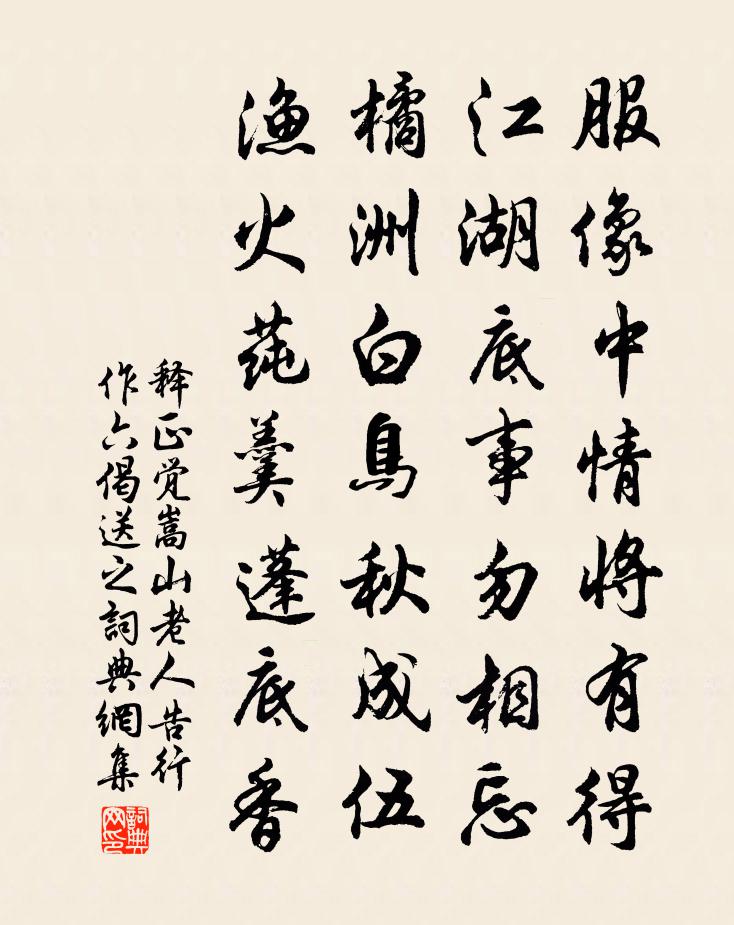 服像中情将有得
江湖底事勿相忘
橘洲白鳥秋成伍
渔火莼羹蓬底香
释正觉嵩山老人告行
作六偈送之詞典網集
詞典网印